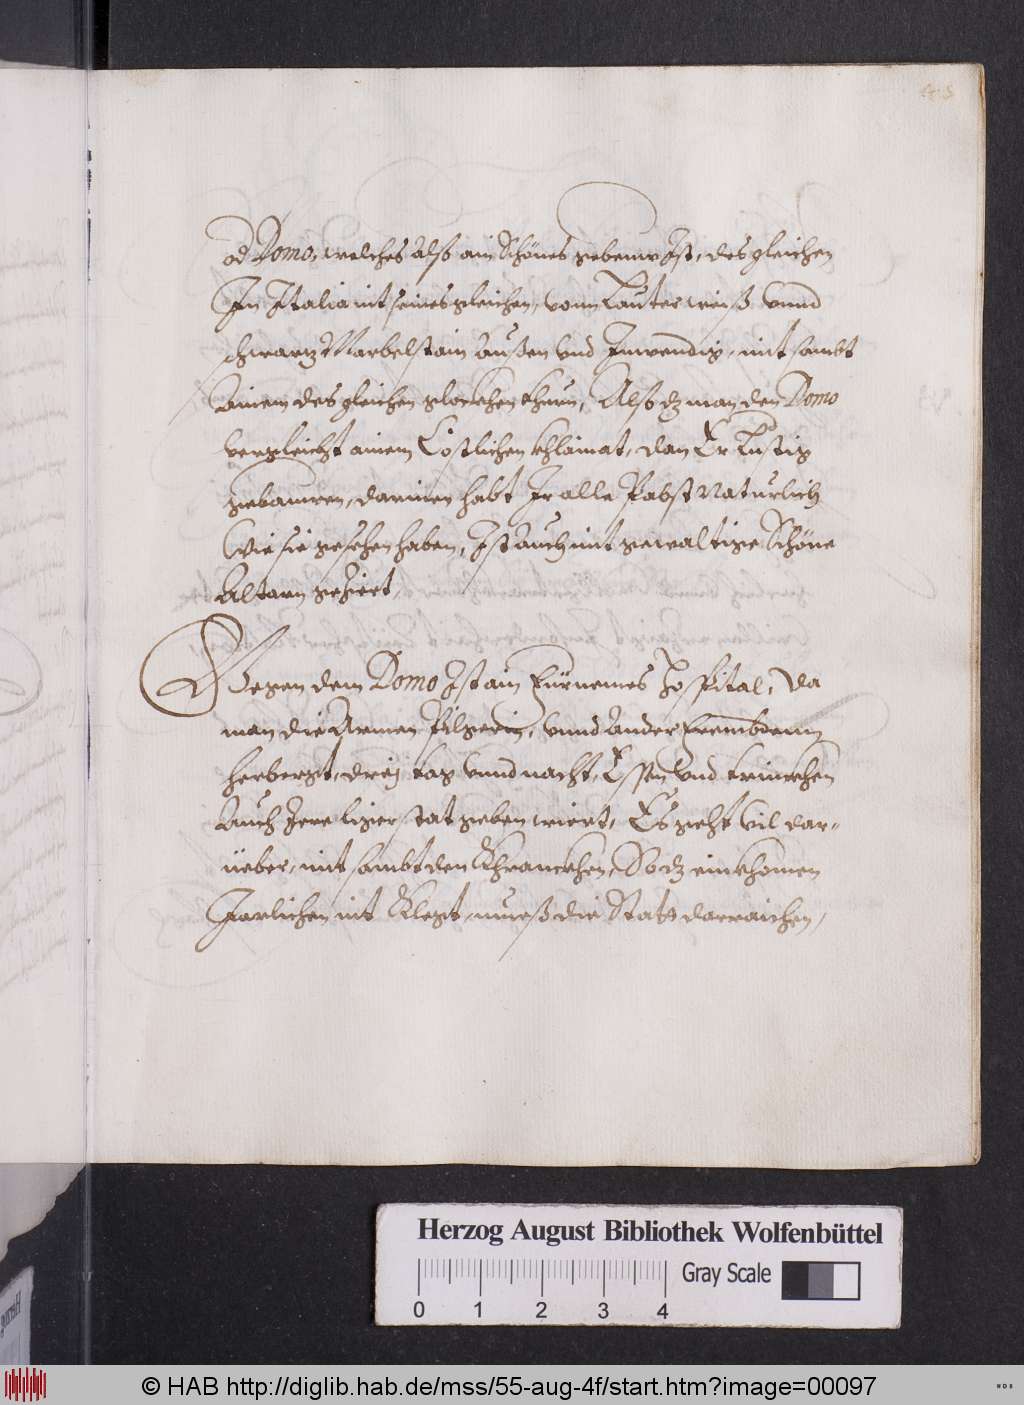 od Domo, welches alß ain Schönes gebeuw Ist, des gleichen
In Italia nit seines gleichen, vonn Lauter weiß vnnd
schwartz Marbelstain außen vnd Inwendig, mit sambt
ainem des gleichen glockhen thurn, Alß dz man den Domo
vergleicht ainem Cöstlichen khlainat, dan Er Lustig
gebauwen, darinen habt Ir alle Pabst Naturlich
Wie sie gesehen haben, Ist auch mit gewaltige Schöne
Altarn geziert,
Gegen dem Domo Ist ain Fürnemes Hospital, Da
man die Armen Pilgerin, vnnd ander Frembdenn
herbergt, dreÿ tag vnnd nacht, Essen vnd trinckhen
Auch Jere ligerstat geben wiert, Es geht vil dar-
üeber, mit sambt den Khranckhen, So dz einkhomen
Jarlichen nit Klegt, mueß die Statt darraichen,
Herzog August Bibliothek Wolfenbüttel
Gray Scale
0 1 2 3 4
© HAB http://diglib.hab.de/mss/55-aug-4f/start.htm?image=00097